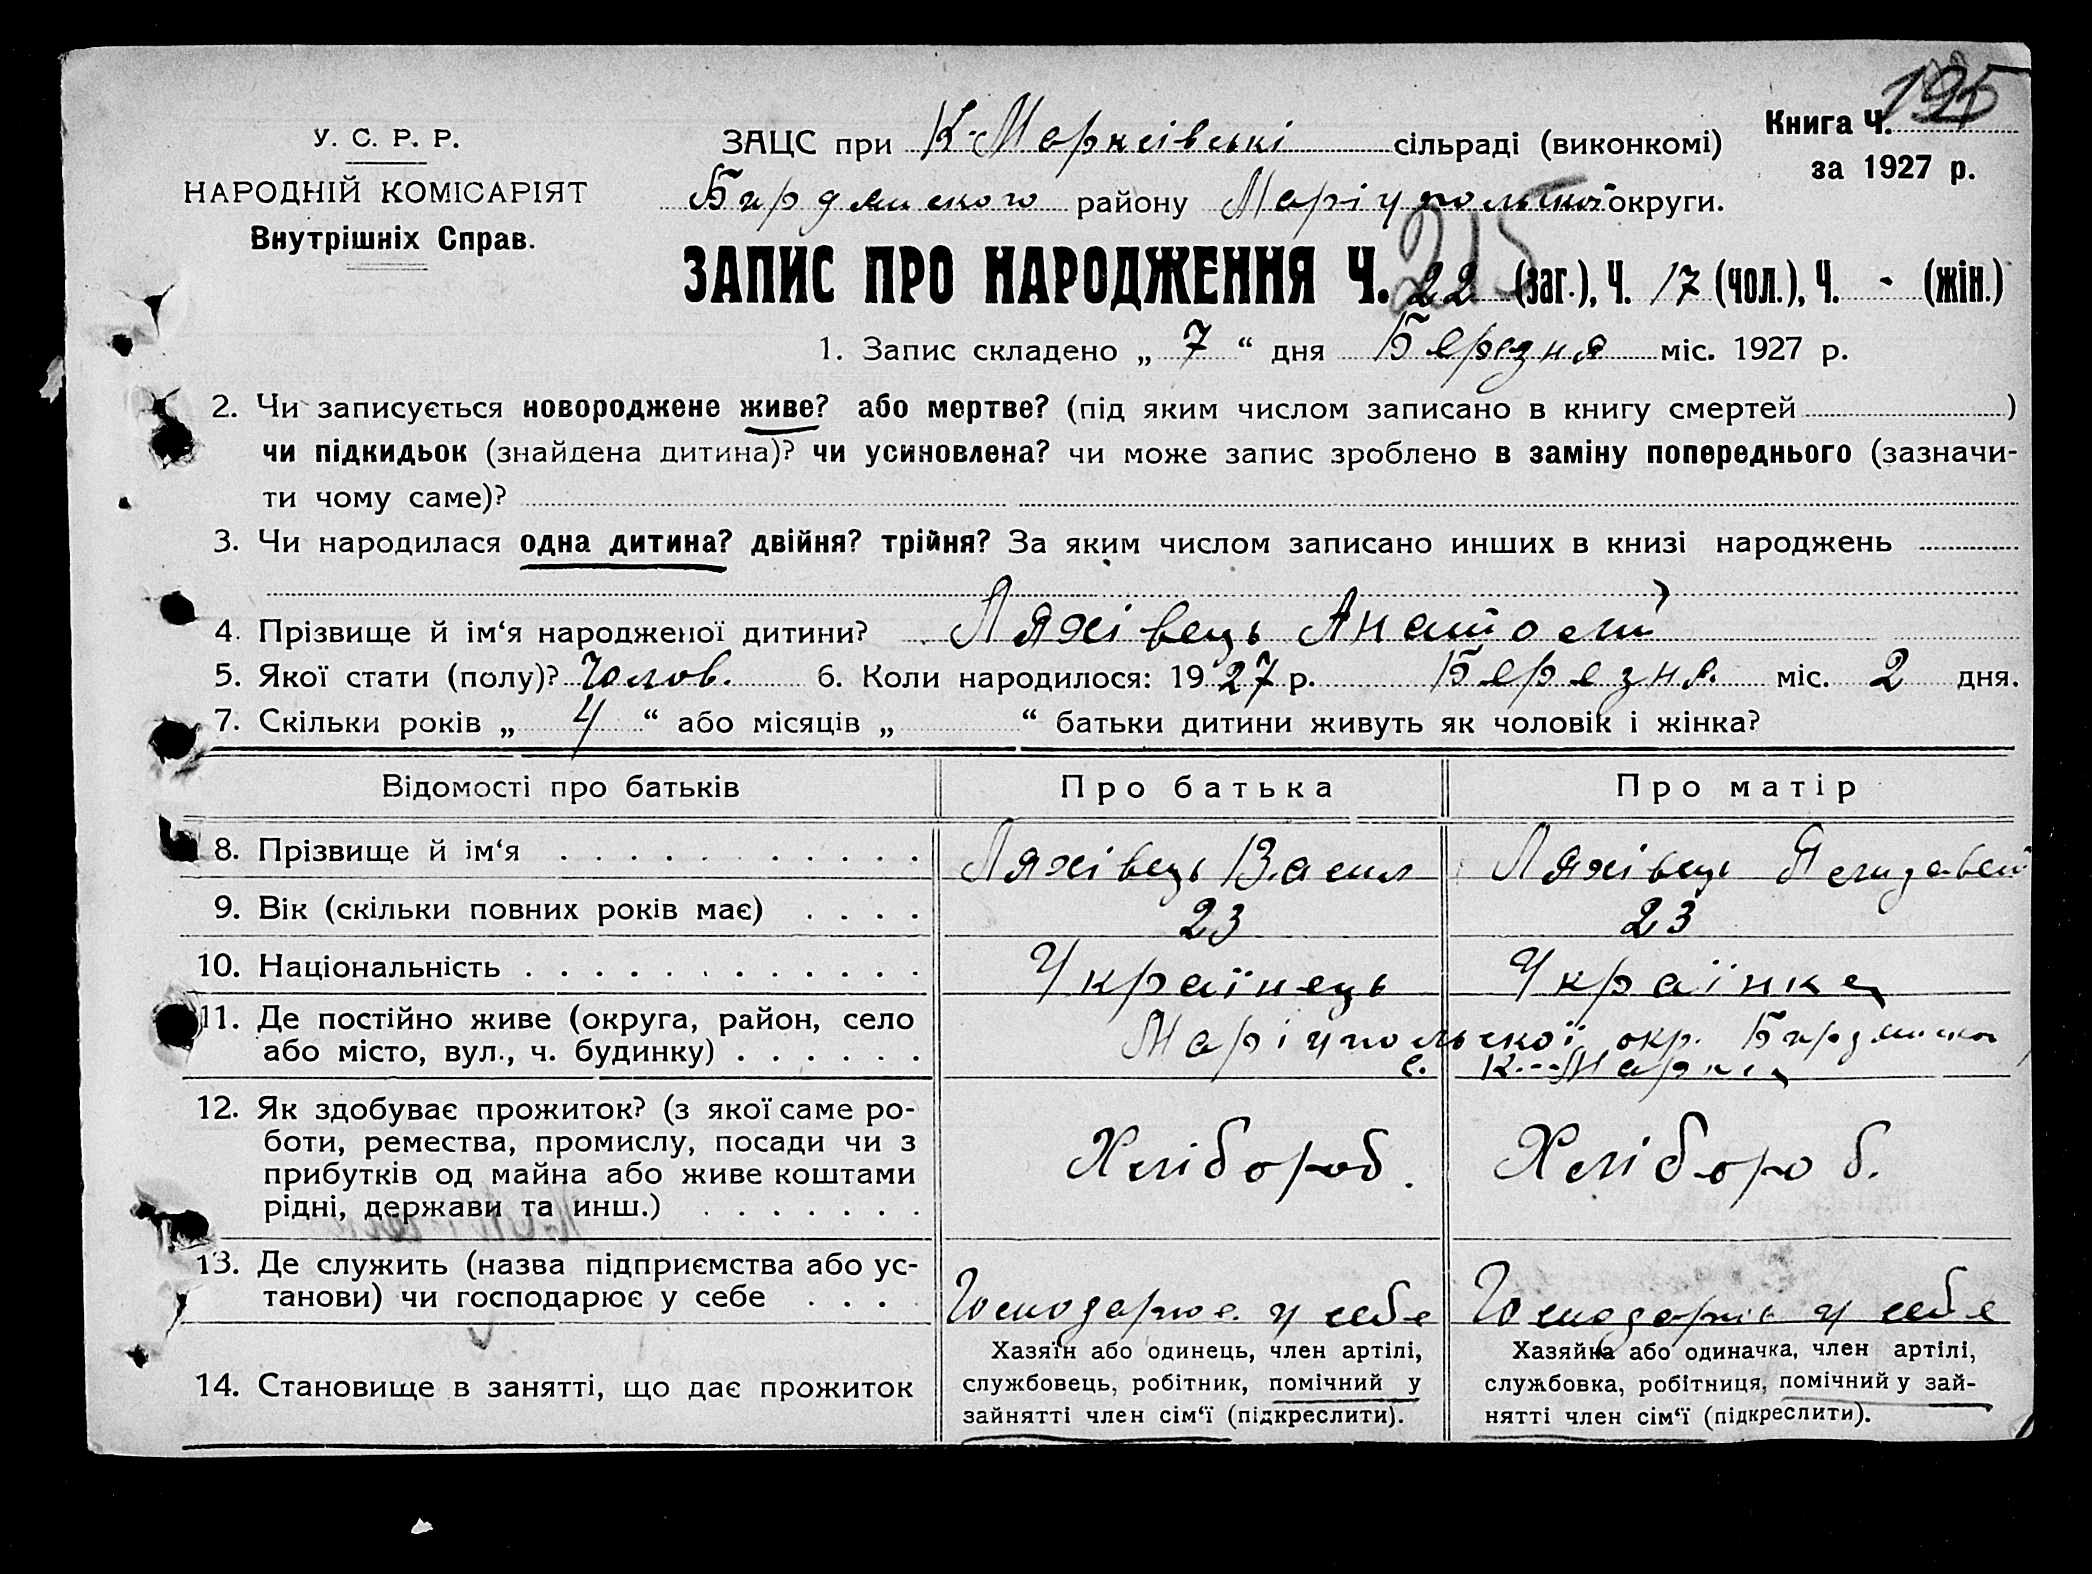 У. С. Р. Р.
НАРОДНІЙ КОМІСАРІЯТ
Внутрішніх Справ.
ЗАЦС при К-Маркеівські сільраді (виконкомі)
Бирдянского району Маріупольської округи.
Книга Ч. 195
за 1927 р.
215
ЗАПИС ПРО НАРОДЖЕННЯ Ч. 22 (заг.), Ч. 17 (чол.), Ч. - (жін.)
1. Запис складено „ 7 “ дня Березня міс. 1927 р.
2. Чи записується новороджене живе? або мертве? (під яким числом записано в книгу смертей )
чи підкидьок (знайдена дитина)? чи усиновлена? чи може запис зроблено в заміну попереднього (зазначи-
ти чому саме)?
3. Чи народилася одна дитина? двійня? трійня? За яким числом записано инших в книзі народжень
4. Прізвище й ім‘я народженої дитини? Ляхівець Анатолій
5. Якої стати (полу)? Чолов. 6. Коли народилося: 1927 р. Березня. міс. 2 дня.
7. Скільки років „ 4 “ або місяців „ “ батьки дитини живуть як чоловік і жінка?
Відомості про батьків Про батька Про матір
8. Прізвище й ім‘я Ляхівець Васил Ляхівець
9. Вік (скільки повних років має) 23 23
10. Національність Українець Українка
11. Де постійно живе (округа, район, село Маріупольскої окр. Бирдянског
або місто, вул., ч. будинку) с. К.-Маркса
12. Як здобуває прожиток? (з якої саме ро-
боти, ремества, промислу, посади чи з Хлібороб. Хлібороб.
прибутків од майна або живе коштами
рідні, держави та инш.)
13. Де служить (назва підприємства або ус-
танови) чи господарює у себе Господарює. у себе Господарює у себе
14. Становище в занятті, що дає прожиток
Хазяїн або одинець, член артілі,
службовець, робітник, помічний у
зайнятті член сім‘ї (підкреслити).
Хазяйка або одиначка, член артілі,
службовка, робітниця, помічний у зай-
нятті член сім‘ї (підкреслити).